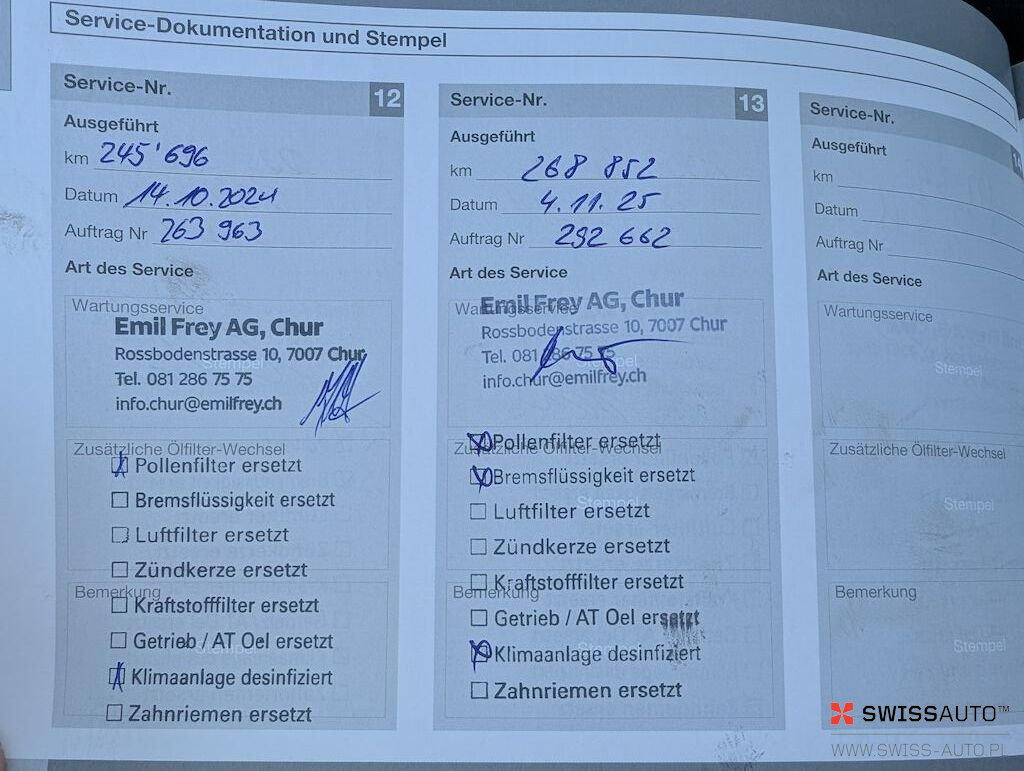 Service-Dokumentation und Stempel
Service-Nr. 12
Ausgeführt
km 245'696
Datum 14.10.2024
Auftrag Nr 263 963
Art des Service
Wartungsservice
Emil Frey AG, Chur
Rossbodenstrasse 10, 7007 Chur
Stempel
Tel. 081 286 75 75
info.chur@emilfrey.ch
Zusätzliche Ölfilter-Wechsel
Pollenfilter ersetzt
Bremsflüssigkeit ersetzt
Luftfilter ersetzt
Zündkerze ersetzt
Bemerkung
Kraftstofffilter ersetzt
Getrieb / AT Oel ersetzt
Stempel
Klimaanlage desinfiziert
Zahnriemen ersetzt
Service-Nr. 13
Ausgeführt
km 268 852
Datum 4.11.25
Auftrag Nr 292 662
Art des Service
Wartungsservice
Emil Frey AG, Chur
Rossbodenstrasse 10, 7007 Chur
Tel. 081 286 75 75
Stempel
info.chur@emilfrey.ch
Pollenfilter ersetzt
Zusätzliche Ölfilter-Wechsel
Bremsflüssigkeit ersetzt
Stempel
Luftfilter ersetzt
Zündkerze ersetzt
Kraftstofffilter ersetzt
Bemerkung
Getrieb / AT Oel ersetzt
Klimaanlage desinfiziert
Stempel
Zahnriemen ersetzt
Service-Nr. 14
Ausgeführt
km
Datum
Auftrag Nr
Art des Service
Wartungsservice
Stempel
Zusätzliche Ölfilter-Wechsel
Stempel
Bemerkung
Stempel
SWISSAUTO™
WWW.SWISS-AUTO.PL